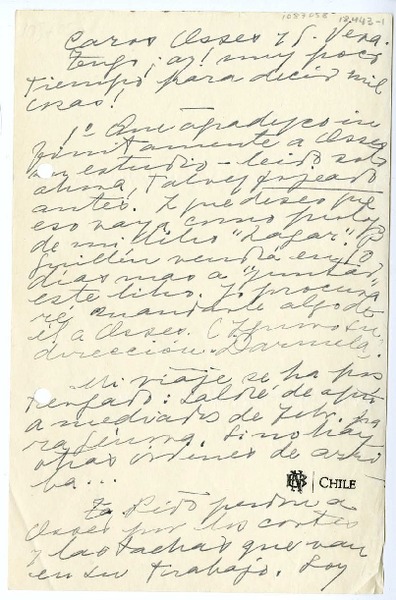 1087058 18443-1
Caros Osses y S. Vera.
Tengo ¡ay! muy poco
tiempo para decir mil
cosas!
1º Que agradezco in
finitamente a Osses
su estudio - leído solo
ahora, talvez ojeado
antes. Y que deseo que
eso vaya como prólogo
de mi libro "Lagar".
Guillén vendrá en 10
días mas a "juntar"
este libro. Yo procura
ré mandarle algo de
él a Osses. (Ignoro su
dirección. Darmela.
Mi viaje se ha pos
tergado: Saldré de aquí
a mediados de Febr. pa
ra Genova. Si no hay
otras ordenes de arri
ba...
BN | CHILE
Le pido perdon a
Osses por los cortes
y las tachas que van
en su trabajo. Soy